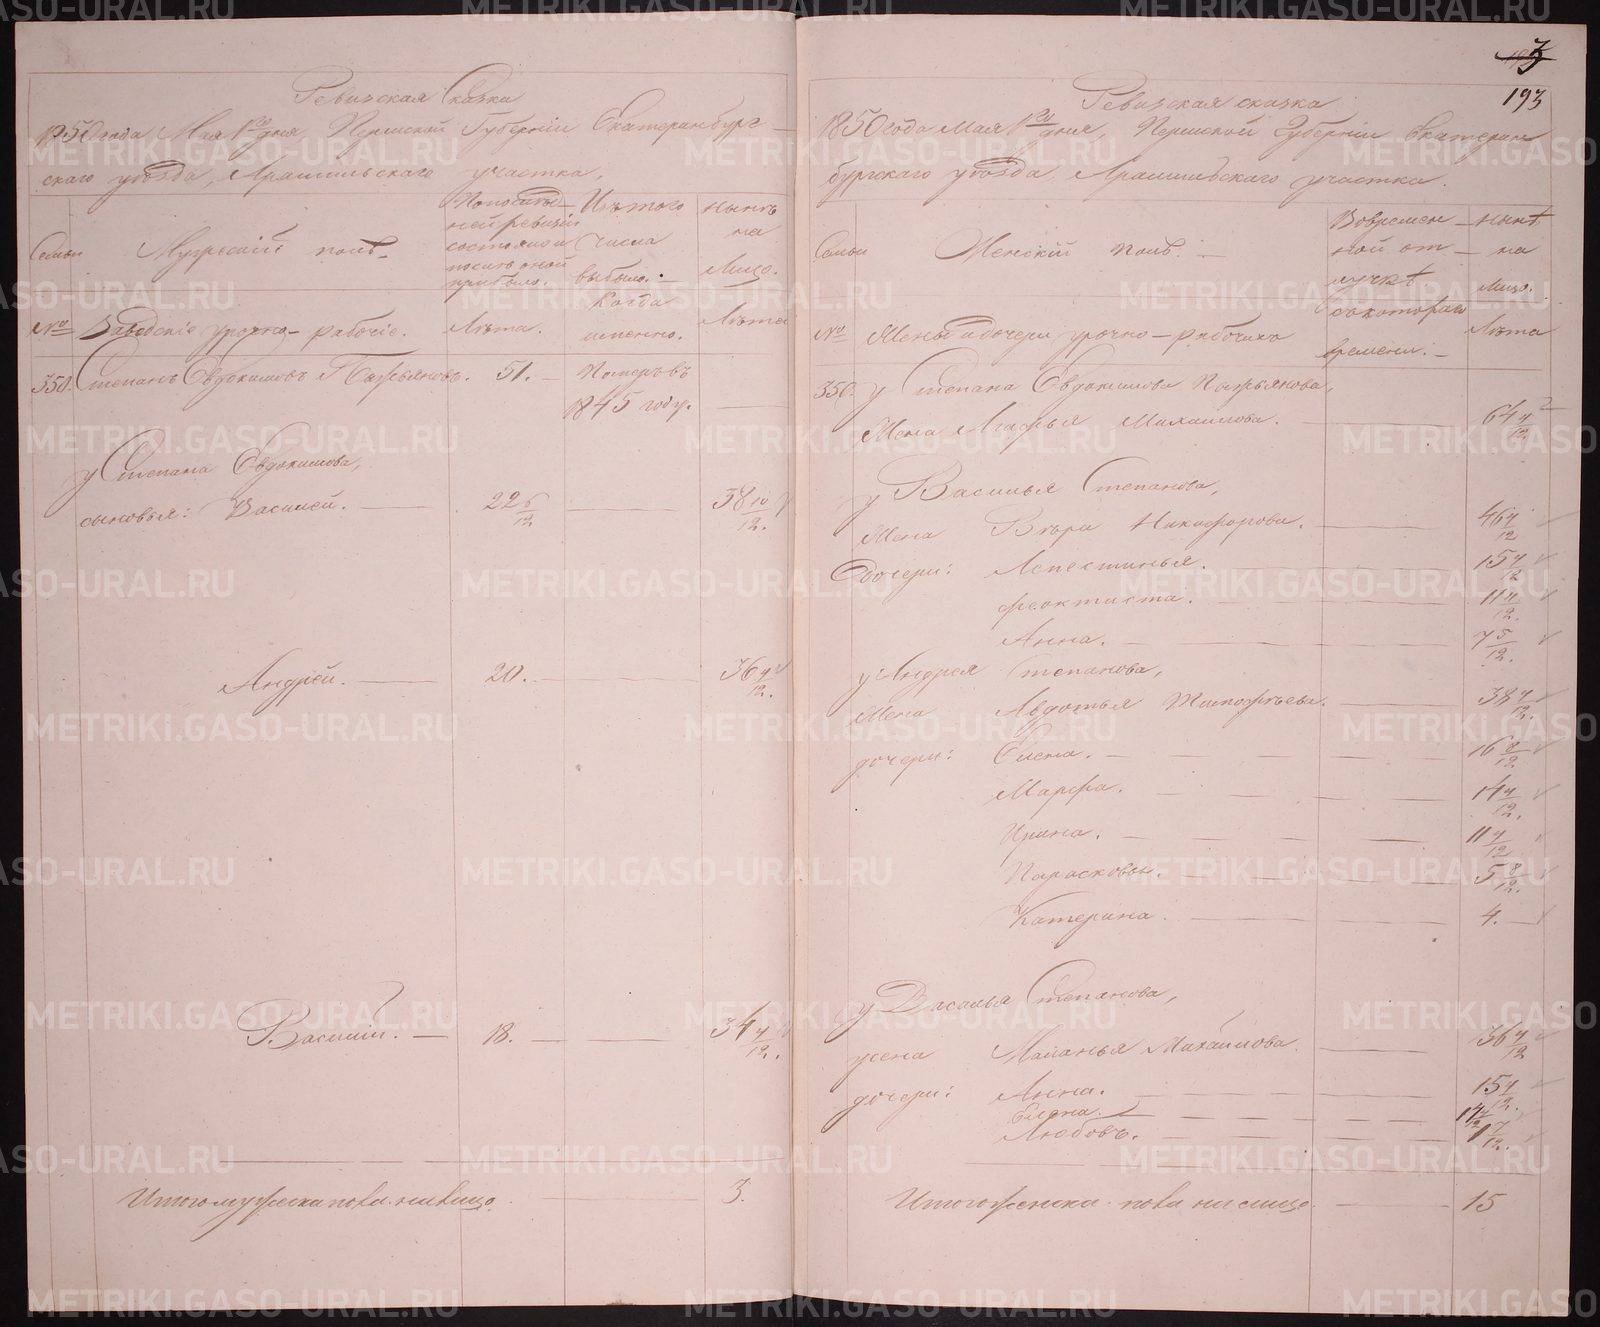 Ревизская Сказка
1850 года Мая 1го дня, Пермской Губернiи Екатеринбург-
скаго уѣзда, Арамильскаго участка,
Семьи
Мужескiй полъ.
По послѣд-
ней ревизiи
состояло и
послѣ оной
прибыло.
Изъ того
числа
выбыло.
Нынѣ
на
лицо.
№
Заводскiе урочно-рабочiе.
Лѣта.
Когда
именно.
Лѣта
350. Степанъ Евдокимовъ Пахьяновъ. 51. Померъ въ
1845 году.
у Степана Евдокимова,
сыновья: Василей. 22 6/12 38 10/12.
Андрей. 20. 36 4/12.
Василiй. 18. 34 4/12.
Итого мужеска пола на лицо. 3.
3
193
Ревизская сказка
1850 года Мая 1го дня, Пермской Губернiи Екатерин
бургскаго уѣзда, Арамильскаго участка.
Семьи
Женскiй полъ.
Во времен
ной от
лучкѣ.
Нынѣ
на
лицо.
№
Жены и дочери урочно-рабочихъ
съ котораго
времени.
Лѣта
350. у Степана Евдокимова Пахьянова,
Жена Агафья Михайлова. 64 4/12
у Василья Степанова,
Жена Вѣра Никифорова. 46 4/12
дочери: Апестинья. 15 4/12
Феоктиста. 11 4/12.
Анна. 7 5/12.
у Андрея Степанова,
Жена Авдотья Тимофѣева. 38 4/12.
дочери: Елена. 16 8/12.
Марфа. 14 4/12.
Ирина. 11 4/12
Парасковья. 5 8/12.
Катерина. 4.
у Василья Степанова,
жена Маланья Михайлова. 36 4/12
дочери: Анна. 15 4/12.
Елена. 14 4/12
Любовь. 1 4/12.
Итого женска пола на лицо. 15
METRIKI.GASO-URAL.RU